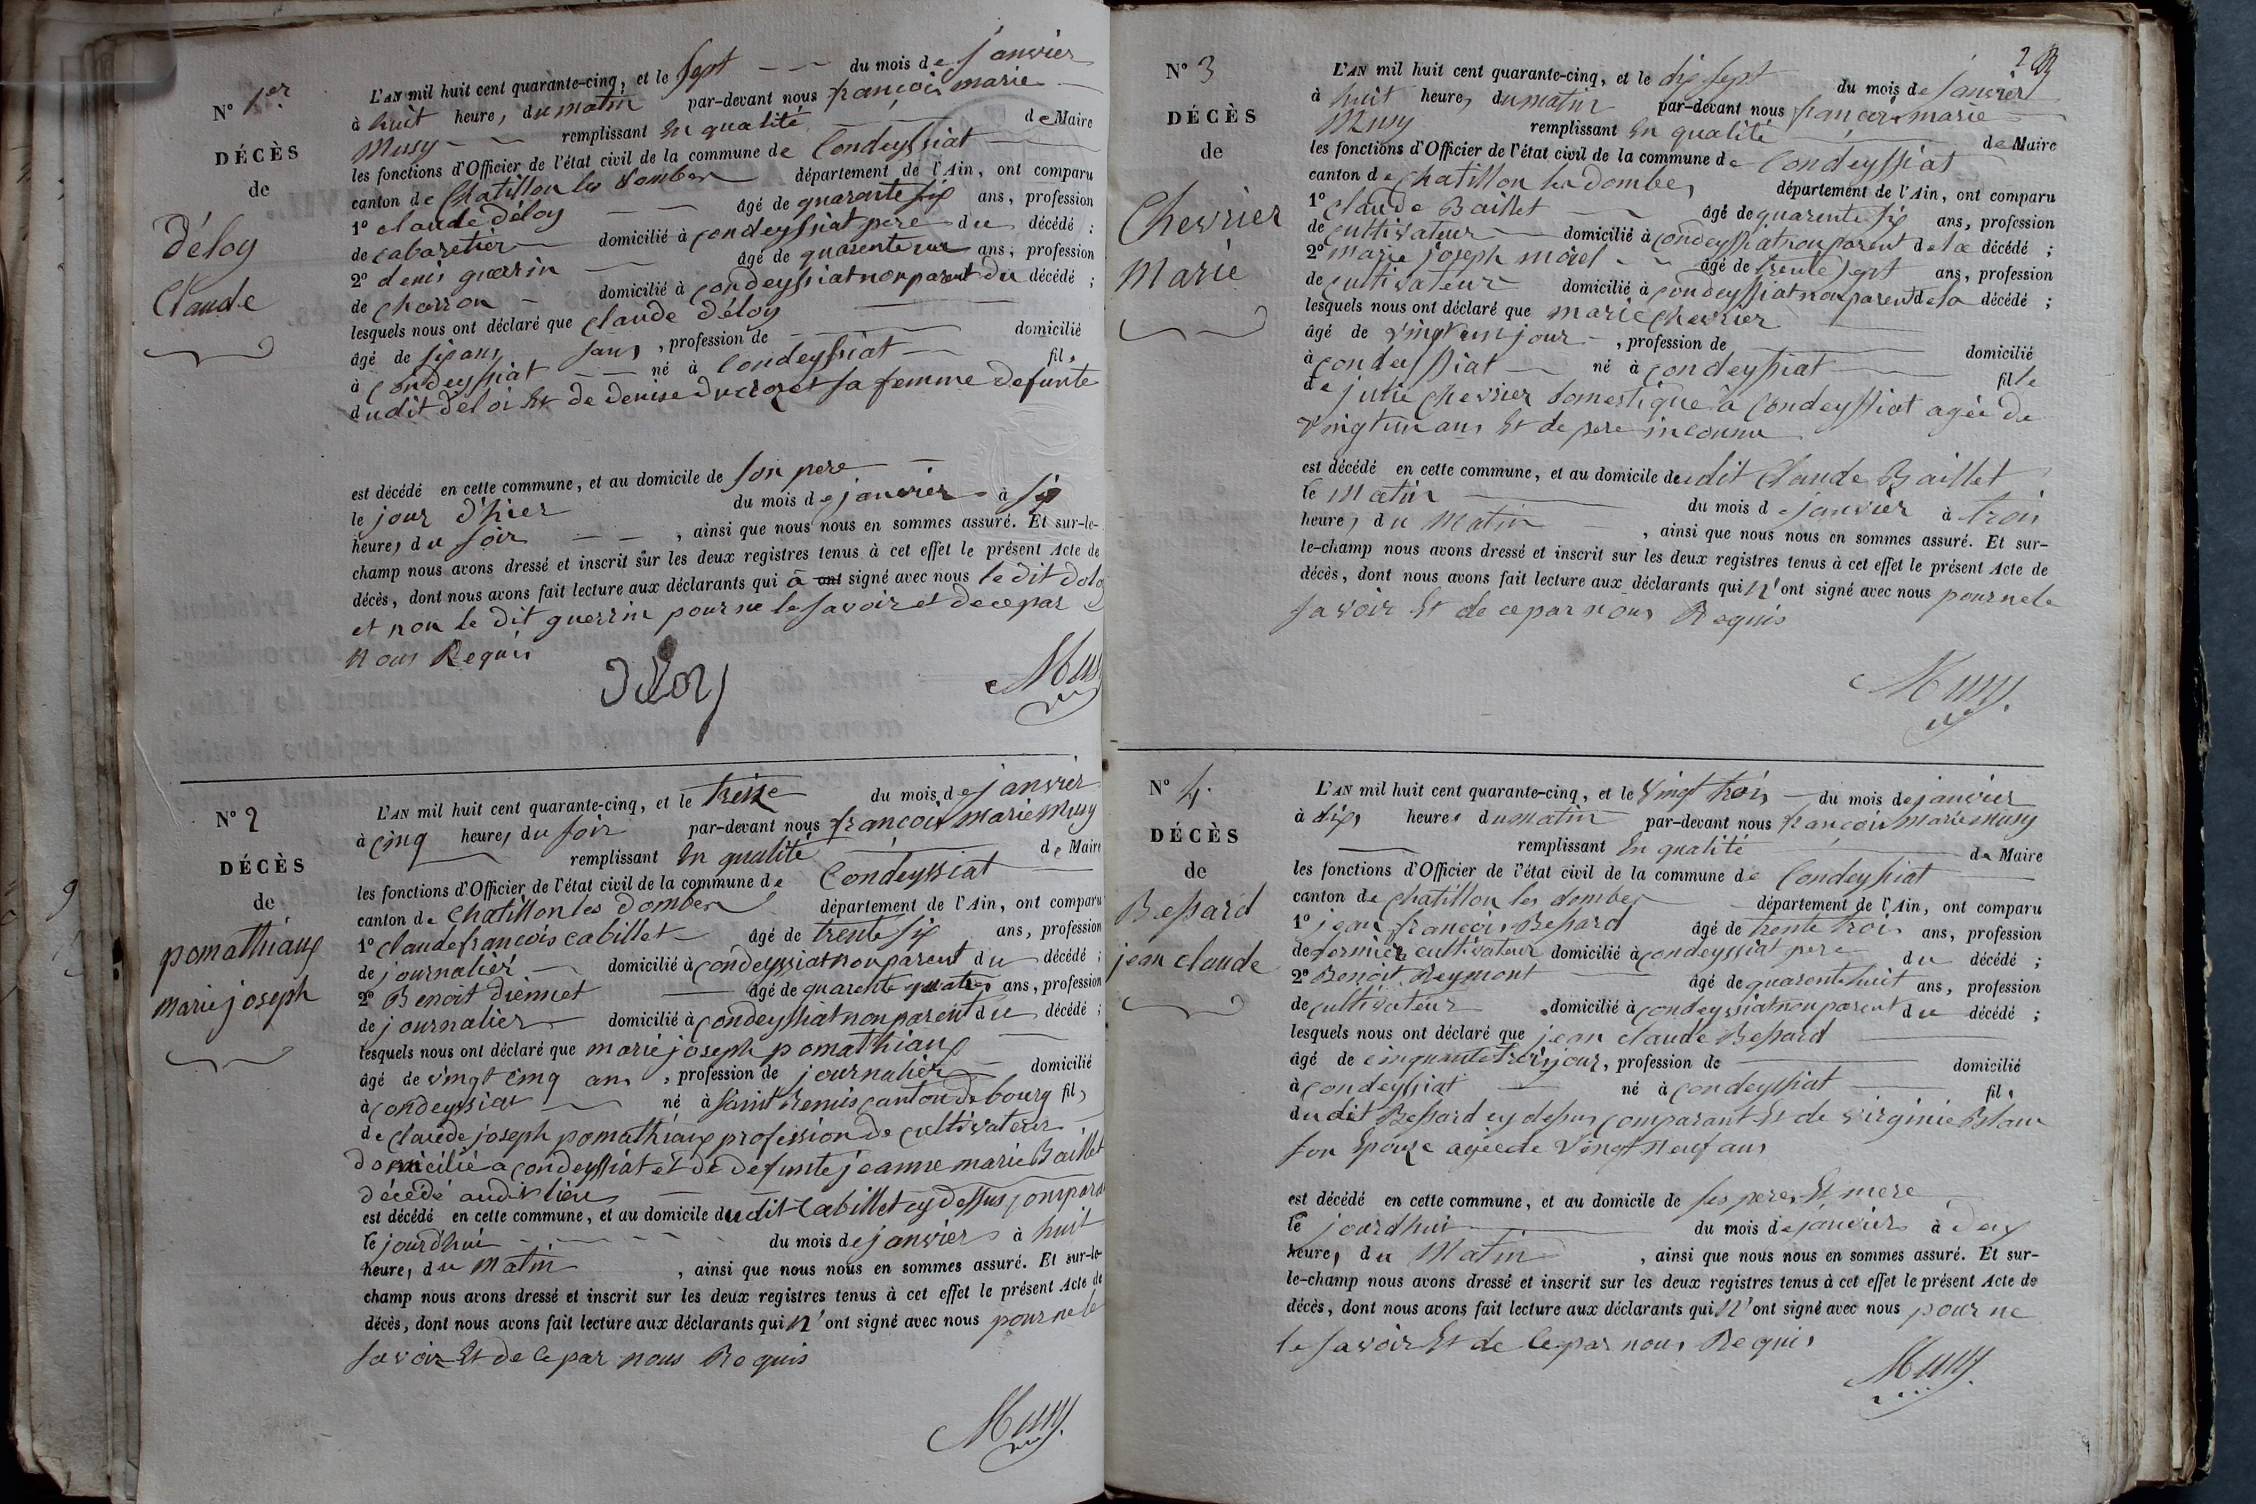 N° 1er
DÉCÈS
de
Déloy
Claude
L'AN mil huit cent quarante-cinq, et le sept du mois de janvier
à huit heures du matin par-devant nous françois marie
Musy remplissant En qualité de Maire
les fonctions d'Officier de l'état civil de la commune de Condeyssiat
canton de Chatillon les Dombes département de l'Ain, ont comparu
1° claude Déloy âgé de quarante six ans, profession
de cabaretier domicilié à condeyssiat pere du décédé ;
2° denis guerrin âgé de quarente un ans, profession
de charron domicilié à condeyssiat non parent du décédé ;
lesquels nous ont déclaré que claude Déloy
âgé de six ans sans, profession de domicilié
à Condeyssiat né à Condeyssiat fils
du dit Deloi Et de Denise Ducrozet sa femme defunte
est décédé en cette commune, et au domicile de son pere
le jour d'hier du mois de janvier à six
heures du soir, ainsi que nous nous en sommes assuré. Et sur-le-
champ nous avons dressé et inscrit sur les deux registres tenus à cet effet le présent Acte de
décès, dont nous avons fait lecture aux déclarants qui a ont signé avec nous le dit Deloy
et non le dit guerrin pour ne le savoir et de ce par
nous Requis
Déloy
Musy
N° 2
DÉCÈS
de
pomathiaux
marie joseph
L'AN mil huit cent quarante-cinq, et le treize du mois de janvier
à cinq heures du soir par-devant nous françois marie Musy
remplissant En qualité de Maire
les fonctions d'Officier de l'état civil de la commune de Condeyssiat
canton de Chatillon les Dombes département de l'Ain, ont comparu
1° claude françois cabillet âgé de trente six ans, profession
de journalier domicilié à condeyssiat non parent du décédé ;
2° Benoit Diennet âgé de quarente quatre ans, profession
de journalier domicilié à condeyssiat non parent du décédé ;
lesquels nous ont déclaré que marie joseph pomathiaux
âgé de vingt cinq ans, profession de journalier domicilié
à condeyssiat né à Saint Remis canton de bourg fils
de claude joseph pomathiaux profession de cultivateur
domicilié a condeyssiat et de defunte jeanne marie Baillet
décédé audit lieu
est décédé en cette commune, et au domicile du dit Cabillet cy dessus comparant
le jourd'hui du mois de janvier à huit
heures du matin, ainsi que nous nous en sommes assuré. Et sur-le-
champ nous avons dressé et inscrit sur les deux registres tenus à cet effet le présent Acte de
décès, dont nous avons fait lecture aux déclarants qui n'ont signé avec nous pour ne le
savoir Et de ce par nous Requis
Musy
N° 3
DÉCÈS
de
Chevrier
Marie
L'AN mil huit cent quarante-cinq, et le dix sept du mois de janvier
à huit heures du matin par-devant nous françois marie
Musy remplissant En qualité de Maire
les fonctions d'Officier de l'état civil de la commune de Condeyssiat
canton de Chatillon les Dombes département de l'Ain, ont comparu
1° claude Baillet âgé de quarente six ans, profession
de cultivateur domicilié à condeyssiat non parent de la décédé ;
2° marie joseph morel âgé de trente sept ans, profession
de cultivateur domicilié à condeyssiat non parent de la décédé ;
lesquels nous ont déclaré que marie chevrier
âgé de vingt un jour, profession de domicilié
à condeyssiat né à condeyssiat fille
de julie chevrier domestique à Condeyssiat agée de
vingt un ans Et de pere inconnu
est décédé en cette commune, et au domicile du dit Claude Baillet
le matin du mois de janvier à trois
heures du matin, ainsi que nous nous en sommes assuré. Et sur-
le-champ nous avons dressé et inscrit sur les deux registres tenus à cet effet le présent Acte de
décès, dont nous avons fait lecture aux déclarants qui n'ont signé avec nous pour ne le
savoir Et de ce par nous Requis
Musy
N° 4.
DÉCÈS
de
Bessard
jean claude
L'AN mil huit cent quarante-cinq, et le vingt trois du mois de janvier
à dix heures du matin par-devant nous françois marie Musy
remplissant En qualité de Maire
les fonctions d'Officier de l'état civil de la commune de Condeyssiat
canton de Chatillon les dombes département de l'Ain, ont comparu
1° jean françois Bessard âgé de trente trois ans, profession
de fermier cultivateur domicilié à condeyssiat pere du décédé ;
2° Benoit Reymont âgé de quarente huit ans, profession
de cultivateur domicilié à condeyssiat non parent du décédé ;
lesquels nous ont déclaré que jean claude Bessard
âgé de cinquante trois jour, profession de domicilié
à condeyssiat né à condeyssiat fils
du dit Bessard cy dessus comparant Et de virginie
son Epouze agée de vingt neuf ans
est décédé en cette commune, et au domicile de ses pere Et mere
le jourdhui du mois de janvier à deux
heures du matin, ainsi que nous nous en sommes assuré. Et sur-
le-champ nous avons dressé et inscrit sur les deux registres tenus à cet effet le présent Acte de
décès, dont nous avons fait lecture aux déclarants qui n'ont signé avec nous pour ne
le savoir Et de ce par nous Requis
Musy